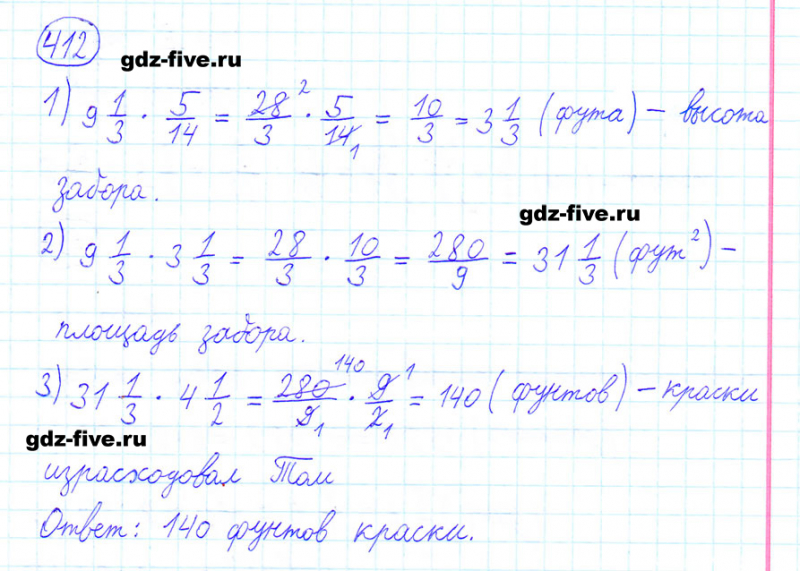 412
gdz-five.ru
1) 9 1/3 · 5/14 = 28/3 2 · 5/14 1 = 10/3 = 3 1/3 (фута) – высота
забора.
gdz-five.ru
2) 9 1/3 · 3 1/3 = 28/3 · 10/3 = 280/9 = 31 1/3 (фут²) –
площадь забора.
3) 31 1/3 · 4 1/2 = 280 140/9 1 · 9 1/2 1 = 140 (фунтов) – краски
gdz-five.ru
израсходовал Том
Ответ: 140 фунтов краски.